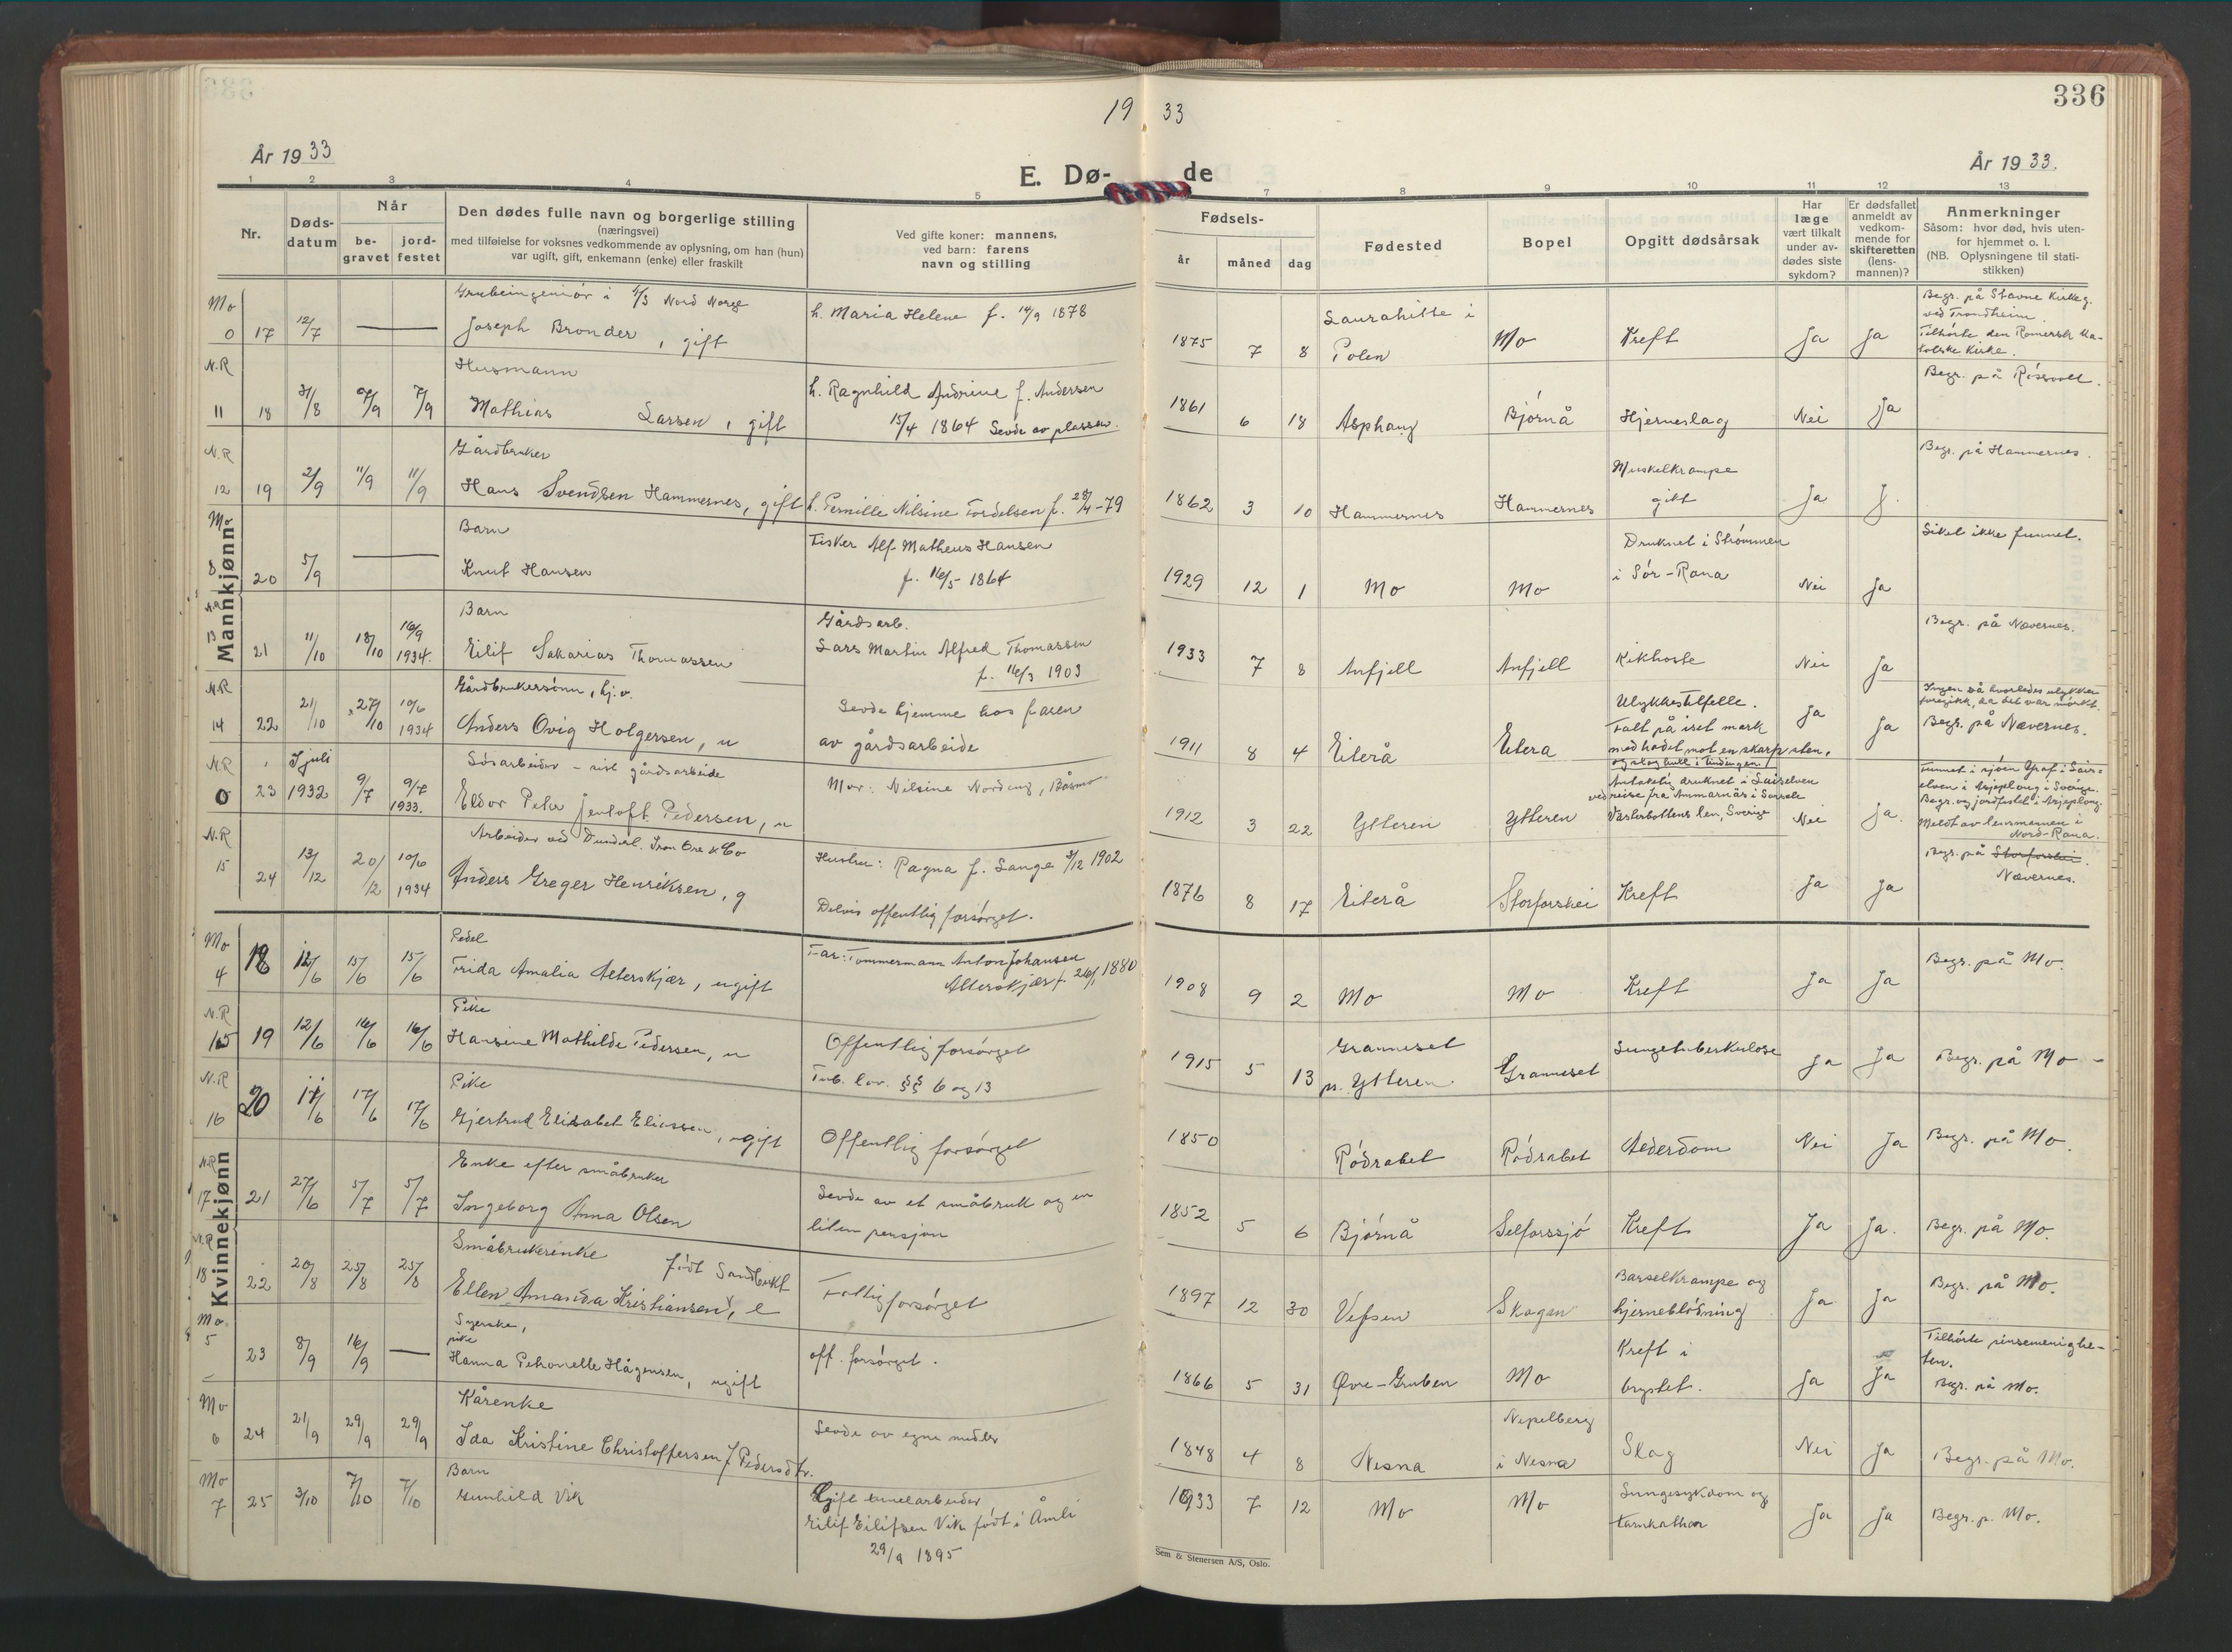 336
19 33
År 1933
E. Dø- de
År 1933.
1 2 3 4 5 7 8 9 10 11 12 13
Nr.
Døds-
datum
Når
be-
gravet
jord-
festet
Den dødes fulle navn og borgerlige stilling
(næringsvei)
med tilføielse for voksnes vedkommende av oplysning, om han (hun)
var ugift, gift, enkemann (enke) eller fraskilt
Ved gifte koner: mannens,
ved barn: farens
navn og stilling
Fødsels-
år måned dag
Fødested
Bopel
Opgitt dødsårsak
Har
læge
vært tilkalt
under av-
dødes siste
sykdom?
Er dødsfallet
anmeldt av
vedkom-
mende for
skifteretten
(lens-
mannen)?
Anmerkninger
Såsom: hvor død, hvis uten-
for hjemmet o. l.
(NB. Oplysningene til stati-
stikken)
Mannkjønn
Mo
0 17 12/7 — Grubeingeniør i Nord Norge
Joseph Bronder, gift
h. Maria Helene f. 14/9 1878
1875 7 8 Laurahitte i
Polen
Mo Kreft Ja Ja
Begr. på Stavne Kirkeg.
ved Trondheim.
Tilhørte den Romersk Ka-
tolske Kirke.
N.R
11 18 31/8 7/9 7/9 Husmann
Mathias Larsen, gift
h. Ragnhild Andrine f. Andersen
15/4 1864 Levde av plassen.
1861 6 18 Asphaug Bjørnå Hjerneslag Nei Ja
Begr. på Røsvoll.
N.R
12 19 2/9 11/9 11/9 Gårdbruker
Hans Svendsen Hammernes, gift
h. Pernille Nilsine Fordelsen f. 28/4-79
1862 3 10 Hammernes Hammernes Muskelkrampe
gikt
Ja J.
Begr. på Hammernes.
Mo
8 20 5/9 — Barn
Knut Hansen
Fisker Alf Matheus Hansen
f. 16/5 1864
1929 12 1 Mo Mo Druknet i Strømmen
i Sør-Rana
Nei Ja
Liket ikke funnet.
N.R
13 21 11/10 18/10 16/9
1934. Barn
Eilif Sakarias Thomassen
Gårdsarb.
Lars Martin Alfred Thomassen
f. 16/3 1903
1933 7 8 Anfjell Anfjell Kikhoste Nei Ja
Begr. på Nævernes.
N.R
14 22 21/10 27/10 10/6
1934 Gårdbrukersønn, hj.v.
Anders Ovig Holgersen, u
Levde hjemme hos faren
av gårdsarbeide
1911 8 4 Eiterå Eiterå Ulykkestilfelle.
Falt på iset mark
med hodet mot en skarp sten,
og slog hull i tindingen.
Ja Ja
Ingen så hvorledes ulykken
foregikk, da det var mørkt.
Begr. på Nævernes.
N.R
0 23 I juli
1932 9/7 9/7
1933. Løsarbeider - sist gårdsarbeide
Eldor Peter Jentoft Pedersen, u
Mor: Nilsine Nordeng, Båsmo
1912 3 22 Ytteren Ytteren Antakelig druknet i Laiselven
ved reise fra Ammarnäs i Sorsele
Västerbottens len, Sverige
Nei Ja.
Funnet i sjøen Graf i Lais-
elven i Arjeploug i Sverige.
Begr. og jordfestet i Arjeploug.
Meldt av lensmannen i
Nord-Rana.
N.R
15 24 13/12 20/12 10/6
1934 Arbeider ved Dunderl. Iron Ore & Co
Anders Greger Henriksen, g
Hustru: Ragna f. Lange 3/12 1902
Delvis offentlig forsørget.
1876 8 17 Eiterå Storforshei Kreft Ja Ja
Begr. på Storforshei.
Nævernes.
Kvinnekjønn
Mo
4 18 12/6 15/6 15/6 Pedel
Frida Amalia Alterskjær, ugift
Far: Tømmermann Anton Johansen
Alterskjær f. 26/1 1880
1908 9 2 Mo Mo Kreft Ja Ja
Begr. på Mo.
N.R
15 19 12/6 16/6 16/6 Pike
Hansine Mathilde Pedersen, u
Offentlig forsørget
Tub. lov. §§ 6 og 13
1915 5 13 Granneset
pr. Ytteren
Granneset Lungetuberkulose Ja Ja
Begr. på Mo -
N.R
16 20 11/6 17/6 17/6 Pike
Gjertrud Elisabet Eliassen, ugift
Offentlig forsørget
1850 Rødrabet Rødrabet Alderdom Nei Ja
Begr. på Mo.
N.R
17 21 27/6 5/7 5/7 Enke efter småbruker
Ingeborg Anna Olsen
Levde av et småbruk og en
liten pensjon
1852 5 6 Bjørnå Selforssjö Kreft Ja Ja.
Begr. på Mo.
N.R
18 22 20/8 25/8 25/8 Småbrukerenke født Sandbukt
Ellen Amanda Kristiansen, e
Fattigforsørget
1897 12 30 Vefsen Skogan Barselkrampe og
hjerneblødning
Ja Ja
Begr. på Mo.
Mo.
5 23 8/9 16/9 — Syerske,
pike
Hanna Petronelle Hågensen, ugift
off. forsørget.
1866 5 31 Øvre-Gruben Mo Kreft i
brystet.
Ja Ja
Tilhørte pinsemenighe-
ten.
Begr. på Mo.
Mo
6 24 21/9 29/9 29/9 Kårenke
Ida Kristine Christoffersen f. Pedersdtr.
Levde av egne midler
1848 4 8 Nesna Nepelberg
i Nesna
Slag Nei Ja
Begr. på Mo.
Mo
7 25 3/10 7/10 7/10 Barn
Gunhild Vik
Gift tunelarbeider
Eilif Eilifsen Vik født i Åmli
29/9 1895
1933 7 12 Mo Mo Lungesykdom og
tarmkathar
Ja Ja
Begr. p. Mo.
Sem & Stenersen A/S, Oslo.